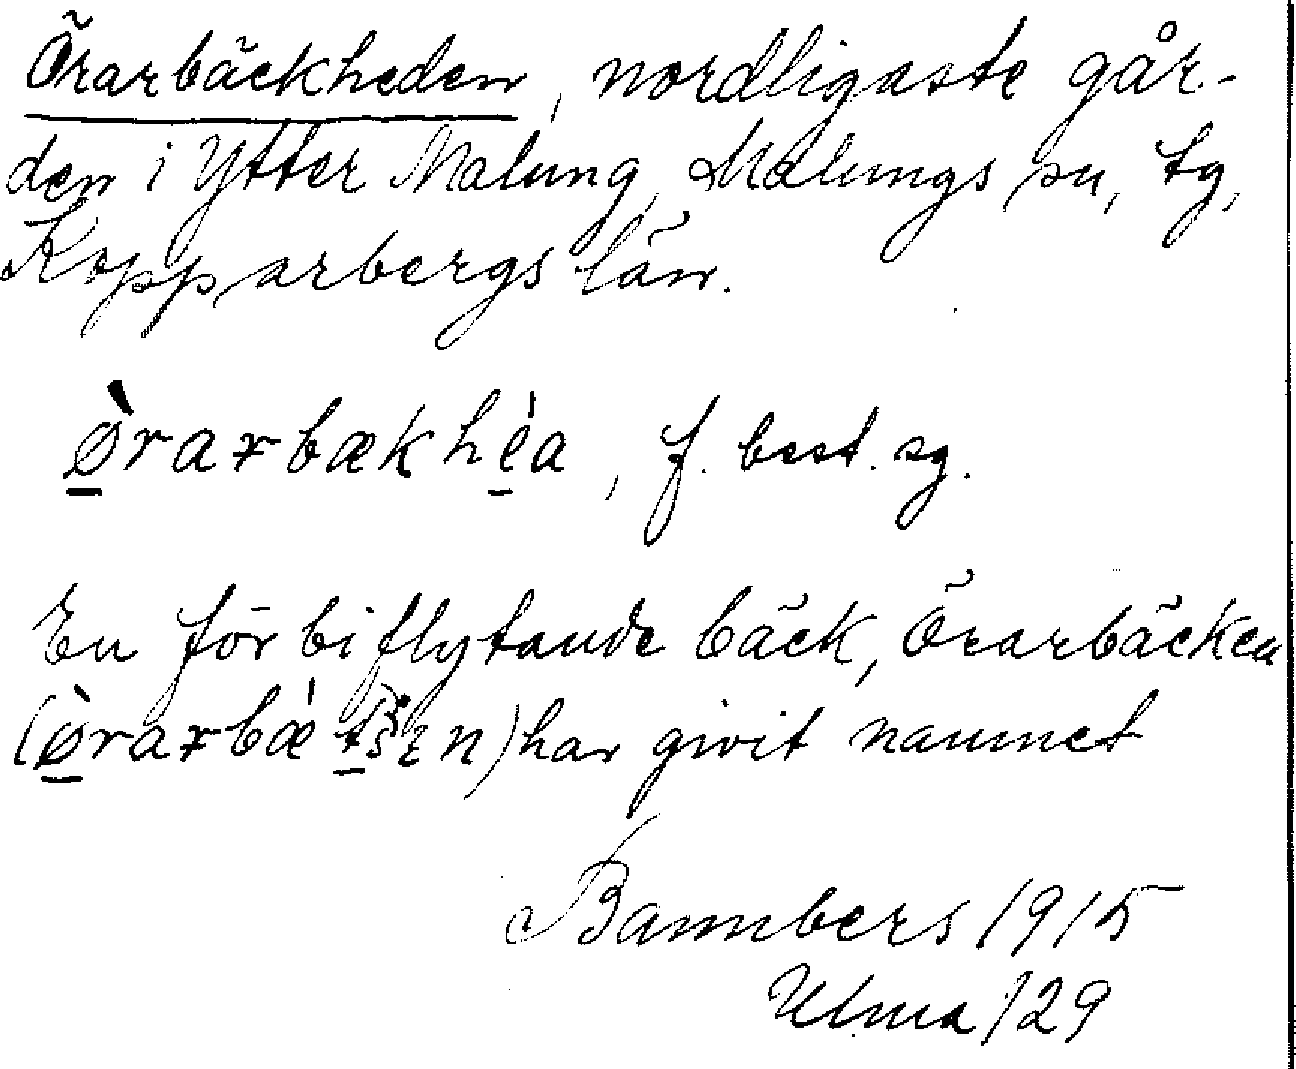 Örarbäckheden, nordligaste går-
den i Ytter Malung, Malungs sn, tg,
Kopparbergs län.
ø̠̀rarbækhé̠a, f. best. sg.
En förbiflytande bäck, Örarbäcken
(ø̠̀rarbǽ n) har givit namnet
Bannbers 1915
Ulma 129